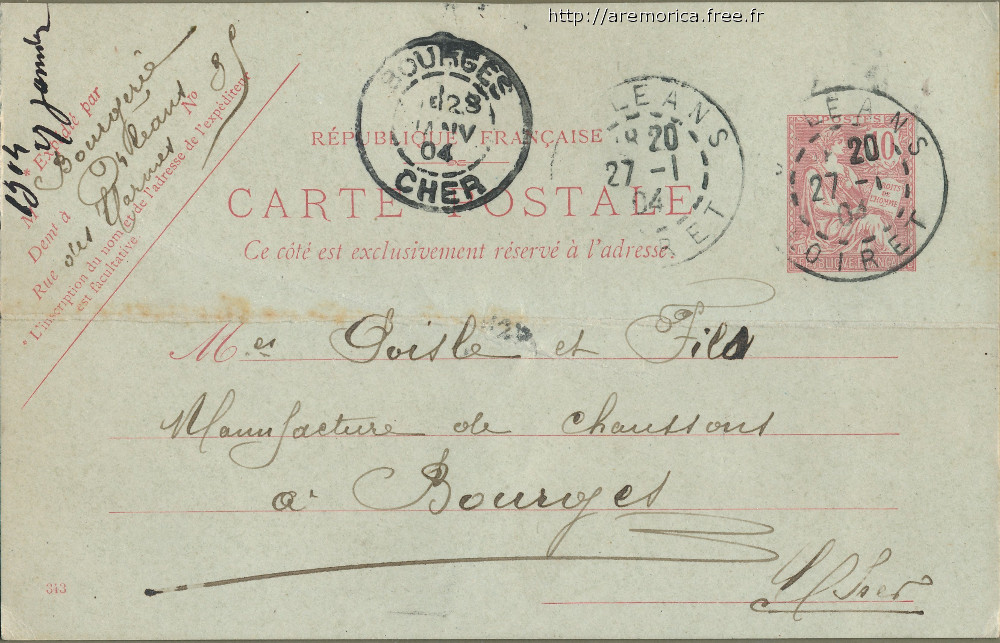 http://aremorica.free.fr
1904
* Expédié par
M Bourgerie
Demt à Orléans
Rue des Carmes No
* L'inscription du nom et de l'adresse de l'expéditeur
est facultative.
BOURGES
28
JANV
04
CHER
RÉPUBLIQUE FRANÇAISE
CARTE POSTALE
Ce côté est exclusivement réservé à l'adresse.
LEANS
20
27 -1
04
RET
POSTES
10
DROITS
DE
L'HOMME
RÉPUBLIQUE FRANÇAISE
LEANS
20
27 -1
04
OIRET
Mes et Fils
Manufacture de chaussons
à Bourges
Cher
343